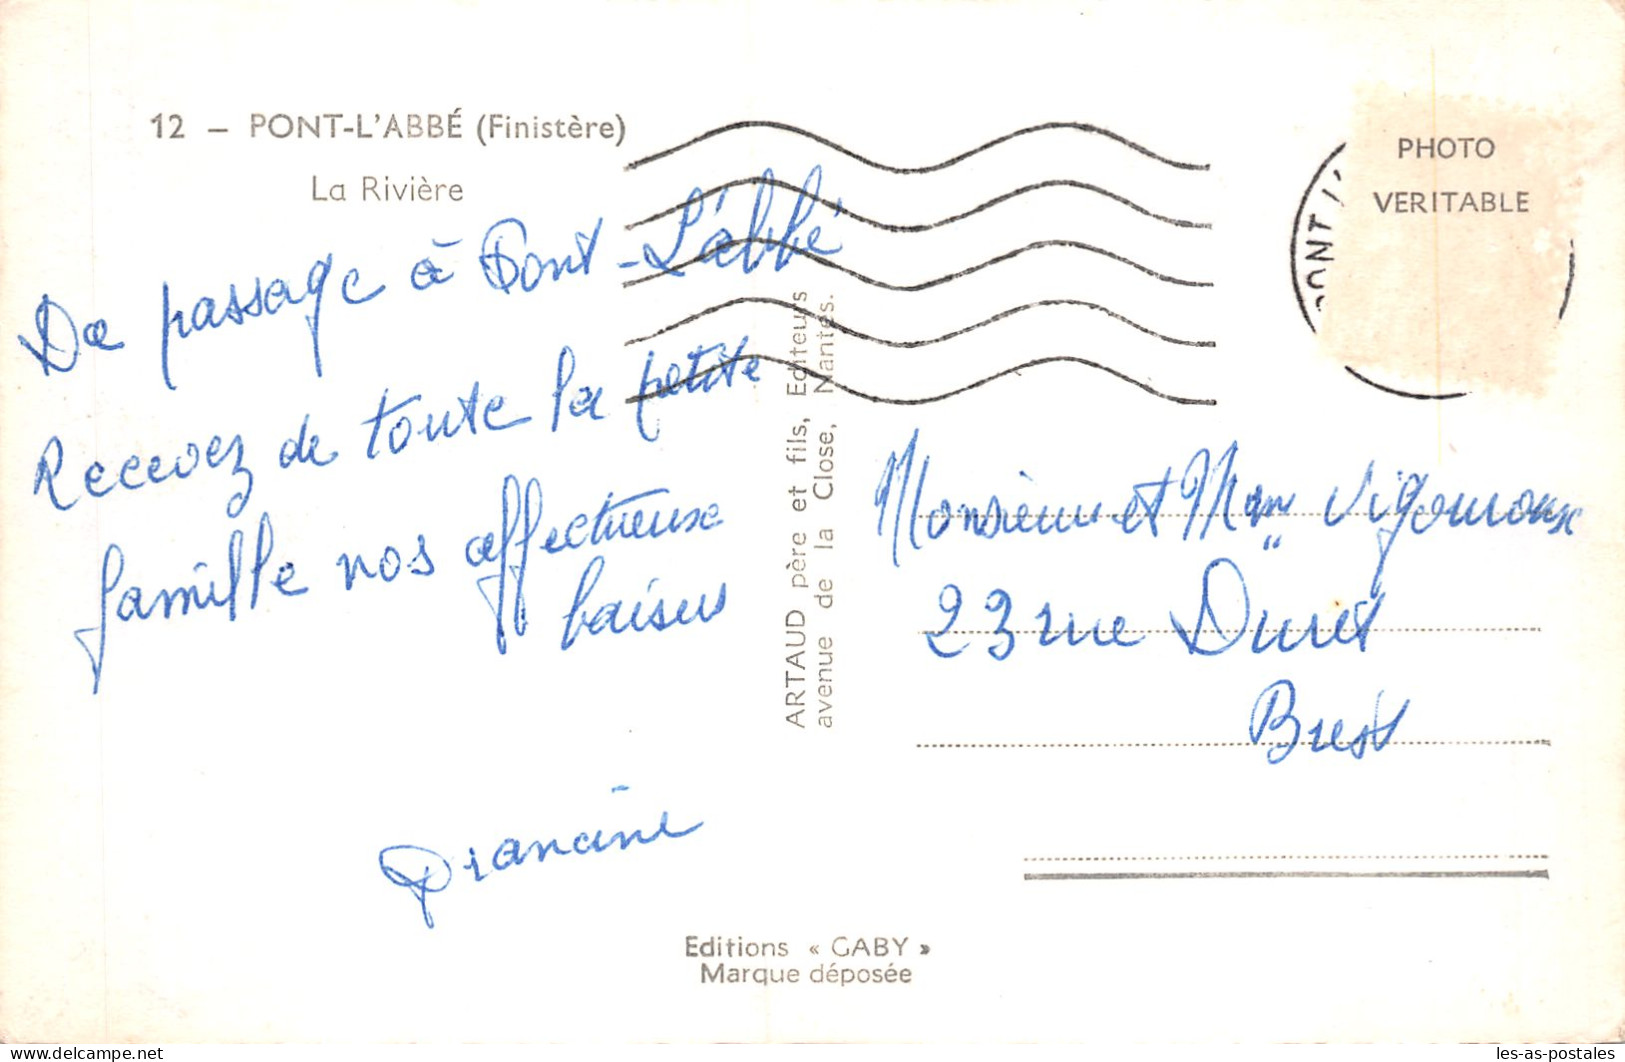 12 – PONT-L'ABBÉ (Finistère)
La Rivière
De passage à Pont-L'abbé
Recevez de toute la petite
famille nos affectueux
baisers
Francine
ARTAUD père et fils, Editeurs
avenue de la Close, Nantes.
PHOTO
VERITABLE
PONT L'
Monsieur et Mme Vigouroux
23 rue Duret
Brest
Editions « GABY »
Marque déposée
les-as-postales
delcampe.net